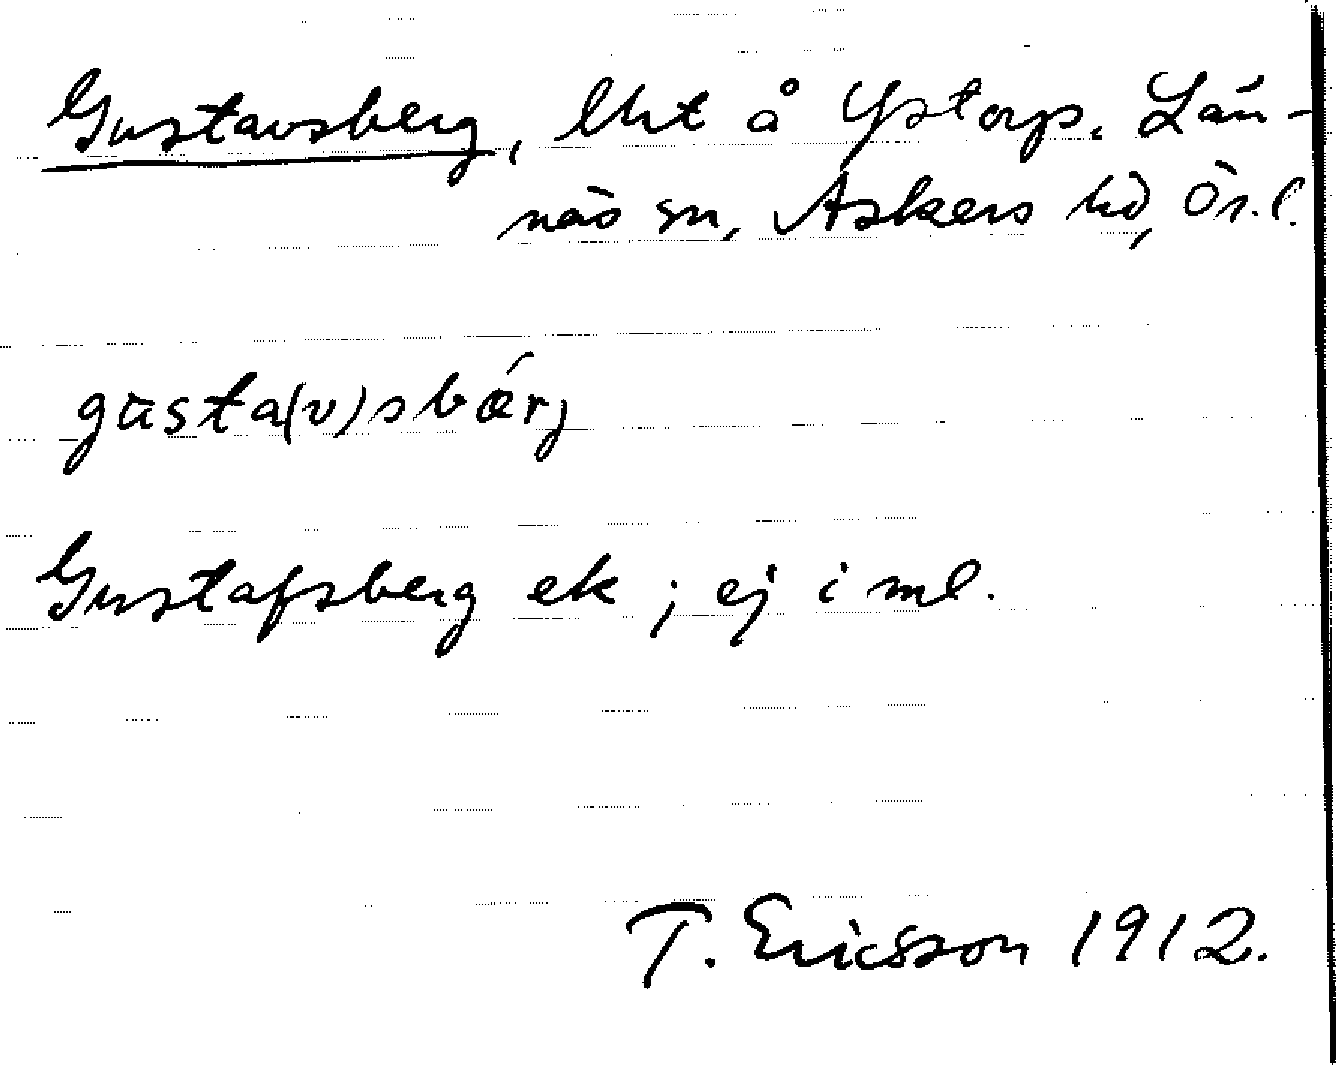 Gustavsberg, lht å Ystorp. Län-
näs sn, Askers hd, Ör. l.
gusta(v)sbǽrj
Gustafsberg ek; ej i ml.
T. Ericsson 1912.